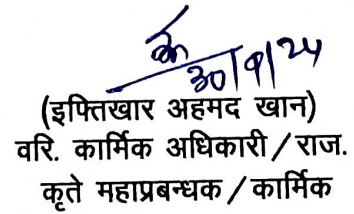 30/9/24
(इफ्तिखार अहमद खान)
वरि. कार्मिक अधिकारी / राज.
कृते महाप्रबन्धक / कार्मिक